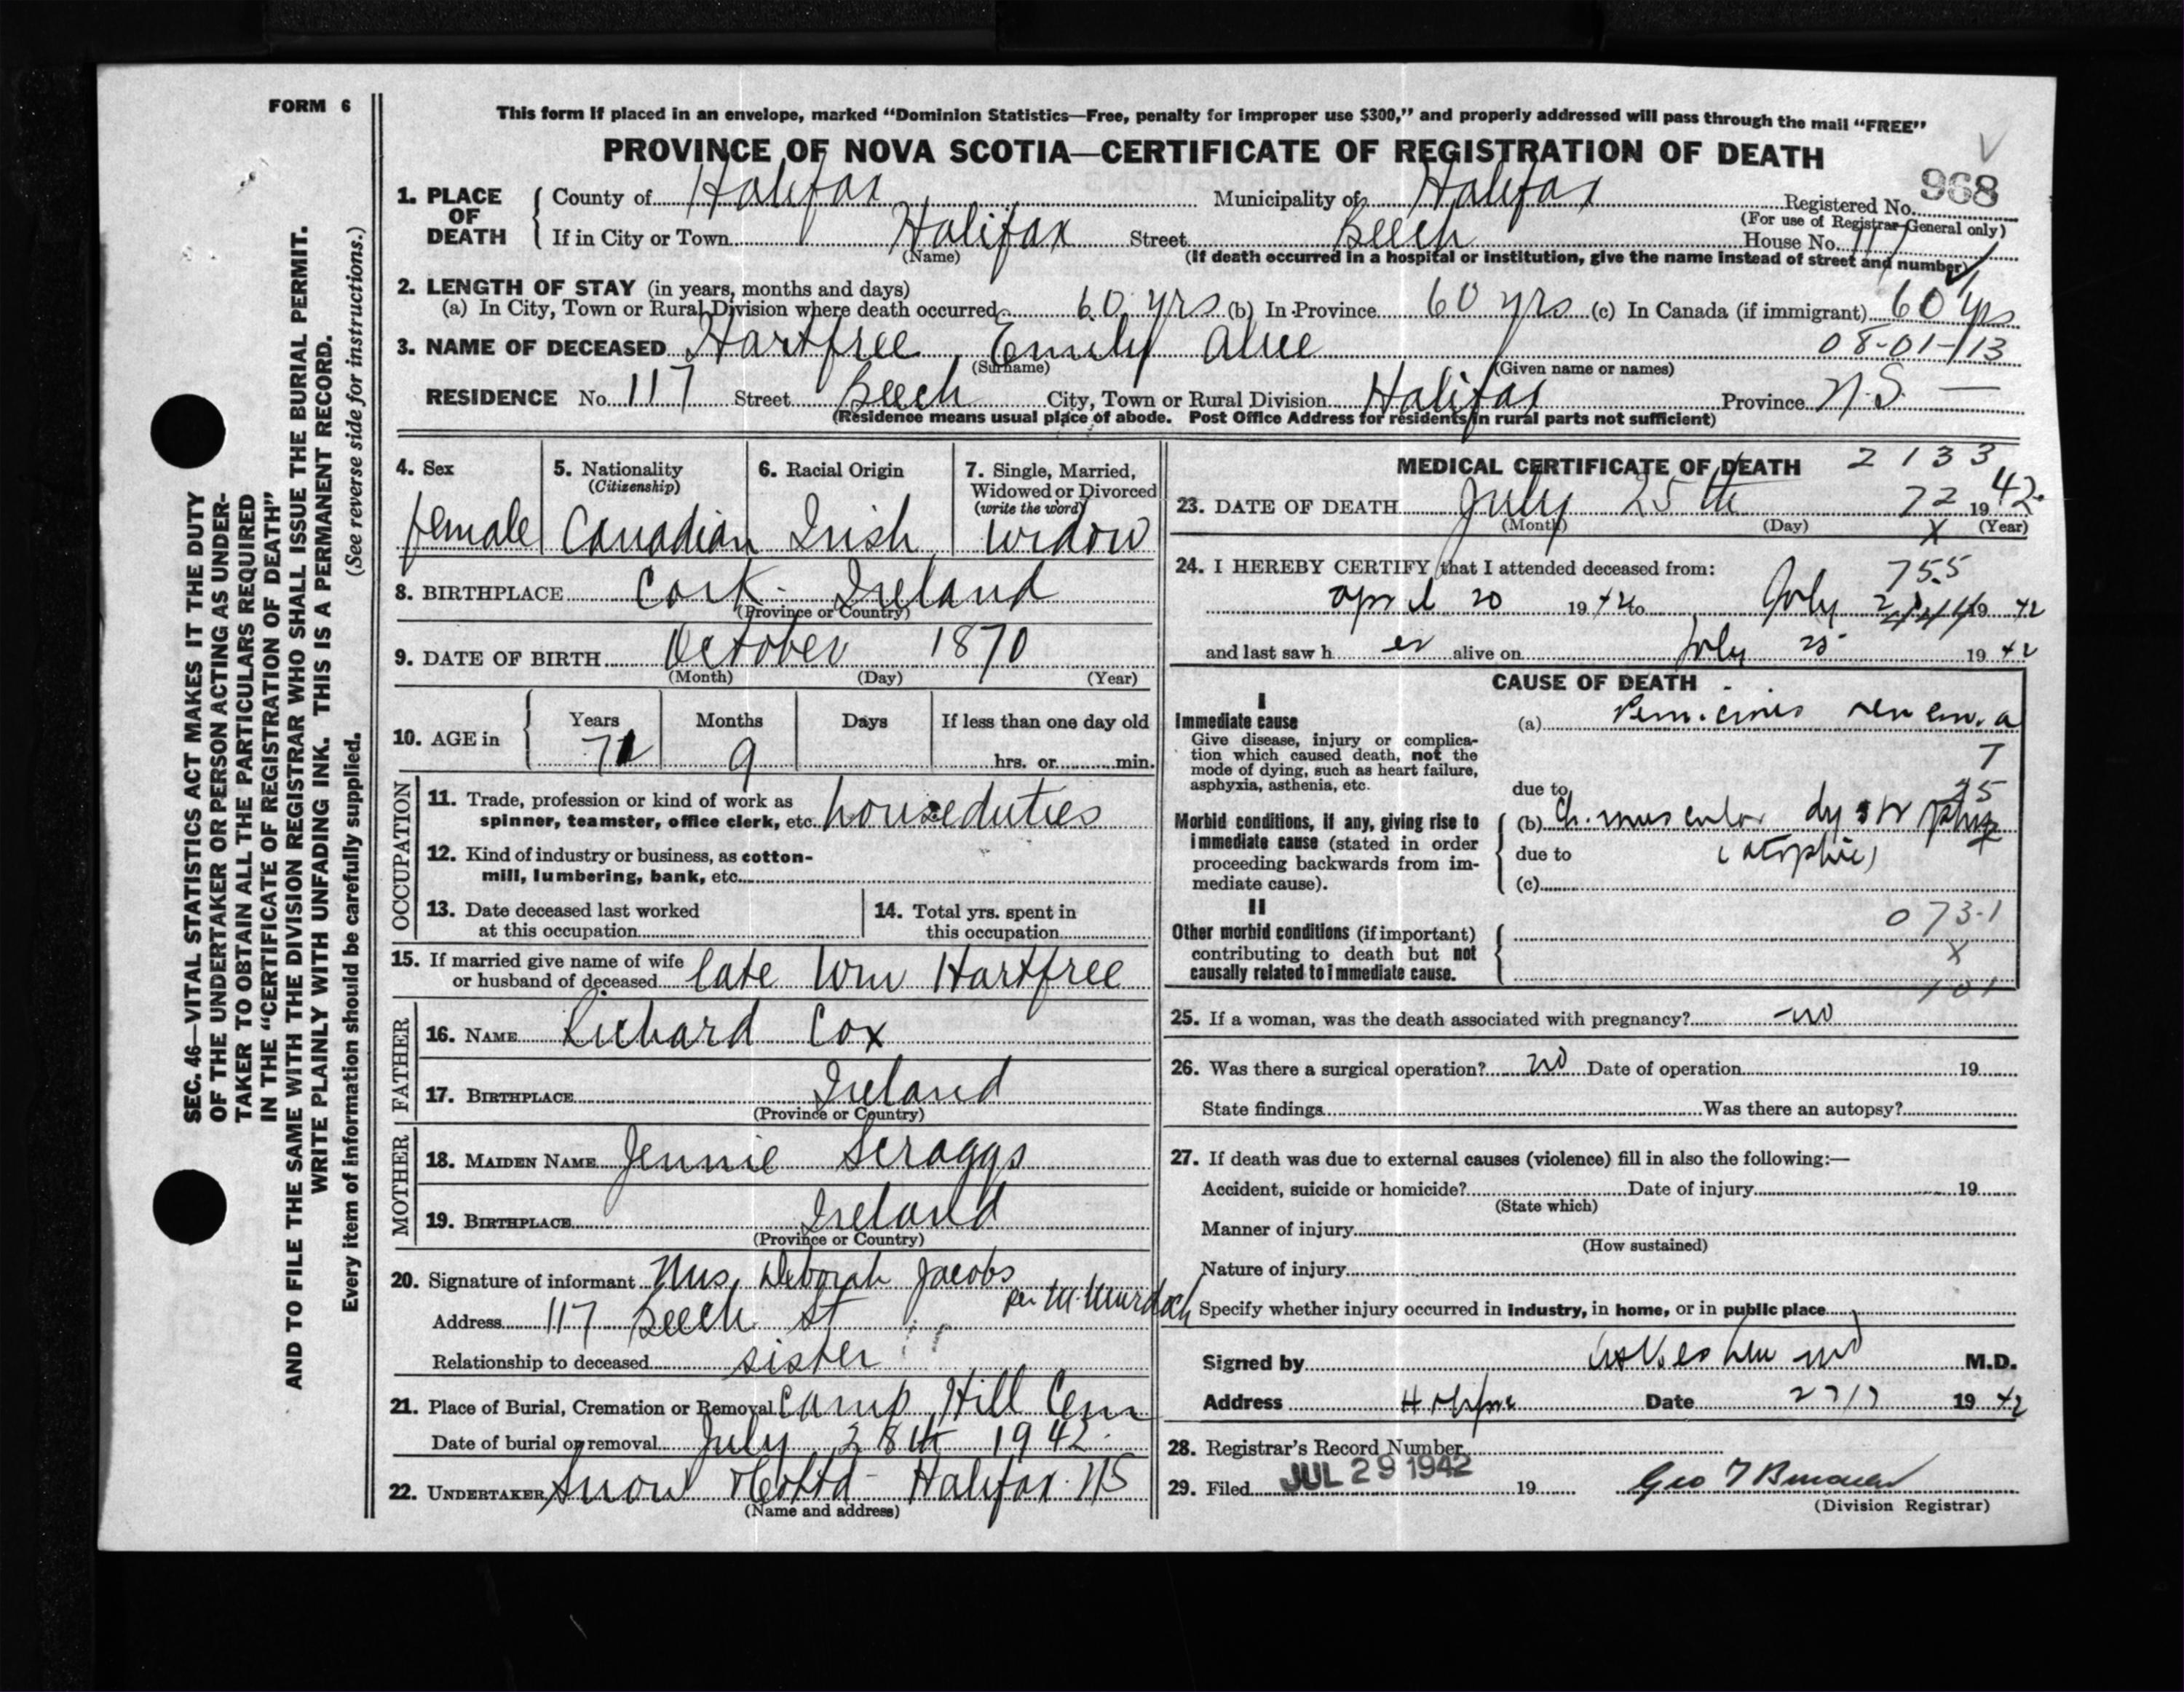 FORM 6
This form if placed in an envelope, marked “Dominion Statistics—Free, penalty for improper use $300,” and properly addressed will pass through the mail “FREE”
PROVINCE OF NOVA SCOTIA—CERTIFICATE OF REGISTRATION OF DEATH
968
1. PLACE OF DEATH
County of Halifax Municipality of Halifax Registered No.
(For use of Registrar-General only)
If in City or Town Halifax Street Beech House No. 117
(Name)
(If death occurred in a hospital or institution, give the name instead of street and number)
2. LENGTH OF STAY (in years, months and days)
(a) In City, Town or Rural Division where death occurred 60 yrs (b) In Province 60 yrs (c) In Canada (if immigrant) 60 yrs
3. NAME OF DECEASED Hartfree, Emily Alice 08-01-113
(Surname) (Given name or names)
RESIDENCE No. 117 Street Beech City, Town or Rural Division Halifax Province N.S. —
(Residence means usual place of abode. Post Office Address for residents in rural parts not sufficient)
4. Sex
female
5. Nationality
(Citizenship)
Canadian
6. Racial Origin
Irish
7. Single, Married,
Widowed or Divorced
(write the word)
Widow
8. BIRTHPLACE Cork - Ireland
(Province or Country)
9. DATE OF BIRTH October 1870
(Month) (Day) (Year)
10. AGE in
Years Months Days If less than one day old
71 9 hrs. or min.
OCCUPATION
11. Trade, profession or kind of work as
spinner, teamster, office clerk, etc. houseduties
12. Kind of industry or business, as cotton-
mill, lumbering, bank, etc.
13. Date deceased last worked
at this occupation
14. Total yrs. spent in
this occupation
15. If married give name of wife
or husband of deceased late Wm Hartfree
FATHER
16. NAME Richard Cox
17. BIRTHPLACE Ireland
(Province or Country)
MOTHER
18. MAIDEN NAME Jennie Scraggs
19. BIRTHPLACE Ireland
(Province or Country)
20. Signature of informant Mrs. Deborah Jacobs
per M. Murdoch
Address 117 Beech St
Relationship to deceased sister
21. Place of Burial, Cremation or Removal Camp Hill Cem
Date of burial or removal July 28th 1942.
22. UNDERTAKER Snow & Co Ltd - Halifax NS
(Name and address)
MEDICAL CERTIFICATE OF DEATH 2133
23. DATE OF DEATH July 25th 72 1942.
(Month) (Day) X (Year)
24. I HEREBY CERTIFY that I attended deceased from:
755
April 20 1942 to July 1942
and last saw h er alive on July 25 1942
CAUSE OF DEATH
I
Immediate cause
Give disease, injury or complica-
tion which caused death, not the
mode of dying, such as heart failure,
asphyxia, asthenia, etc.
(a) Pernicious anemia
7
due to 25
Morbid conditions, if any, giving rise to
immediate cause (stated in order
proceeding backwards from im-
mediate cause).
(b) Ch. muscular dystrophy
due to (atrophic)
(c)
II
073.1
Other morbid conditions (if important)
contributing to death but not
causally related to immediate cause.
X
101
25. If a woman, was the death associated with pregnancy? no
26. Was there a surgical operation? no Date of operation 19
State findings Was there an autopsy?
27. If death was due to external causes (violence) fill in also the following:—
Accident, suicide or homicide? Date of injury 19
(State which)
Manner of injury
(How sustained)
Nature of injury
Specify whether injury occurred in industry, in home, or in public place
Signed by M.D.
Address Halifax Date 27/7 1942
28. Registrar's Record Number
29. Filed JUL 29 1942 19 Geo
(Division Registrar)
SEC. 46—VITAL STATISTICS ACT MAKES IT THE DUTY
OF THE UNDERTAKER OR PERSON ACTING AS UNDER-
TAKER TO OBTAIN ALL THE PARTICULARS REQUIRED
IN THE “CERTIFICATE OF REGISTRATION OF DEATH”
AND TO FILE THE SAME WITH THE DIVISION REGISTRAR WHO SHALL ISSUE THE BURIAL PERMIT.
WRITE PLAINLY WITH UNFADING INK. THIS IS A PERMANENT RECORD.
Every item of information should be carefully supplied. (See reverse side for instructions.)